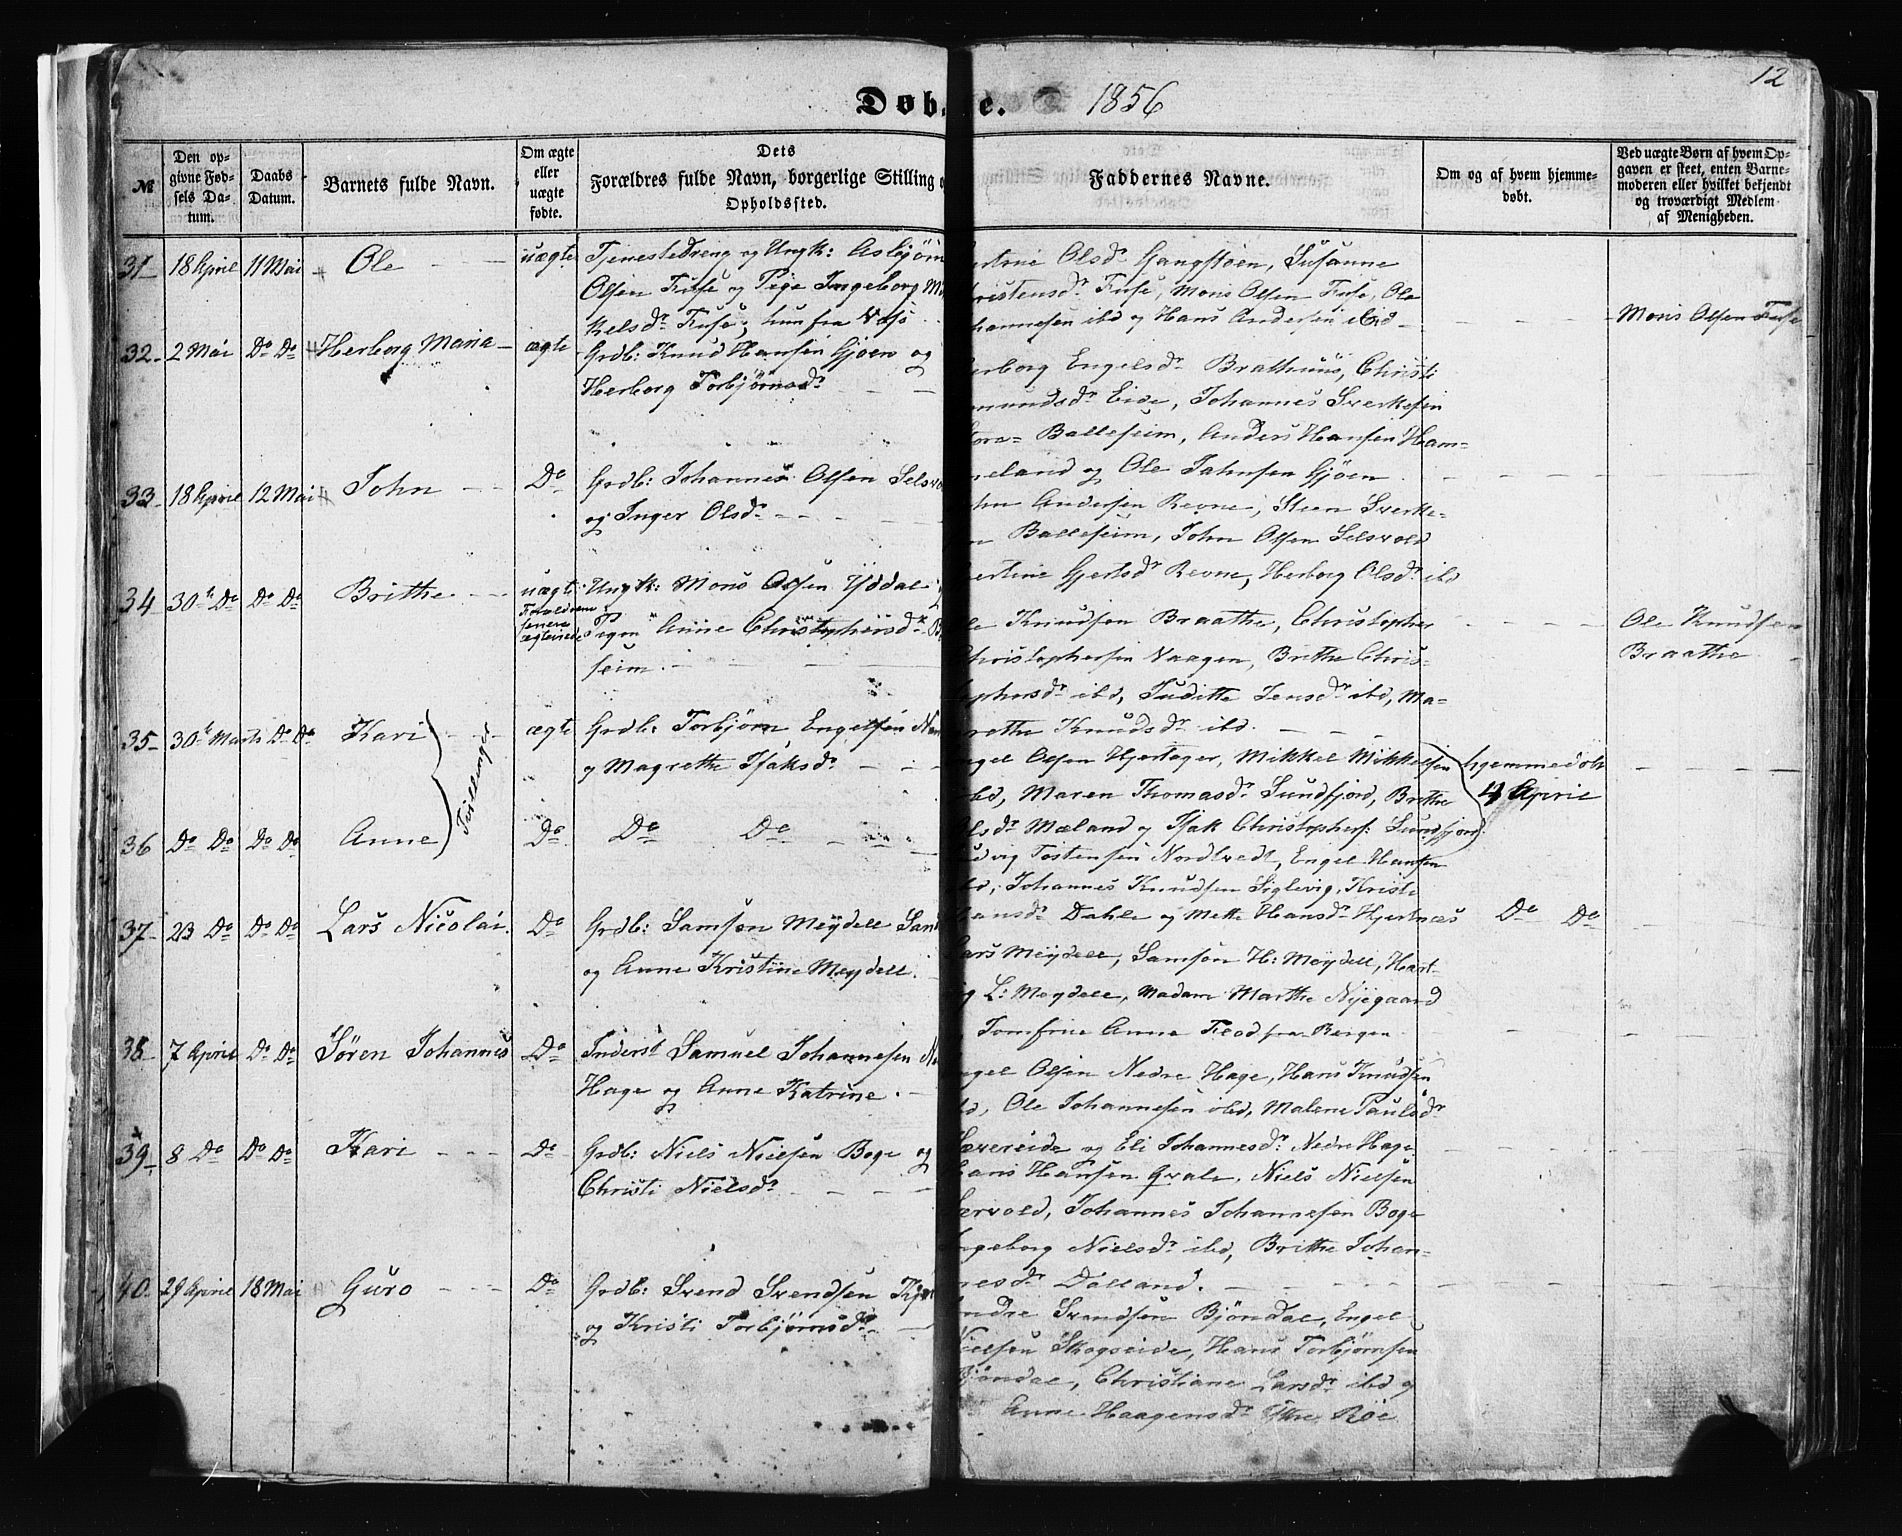 12
Døb e. 1856
№
Den op-
givne Fød-
sels Da-
tum.
Daabs
Datum.
Barnets fulde Navn.
Om ægte
eller
uægte
fødte.
Dets
Forældres fulde Navn, borgerlige Stilling
Opholdssted.
Faddernes Navne.
Om og af hvem hjemme-
døbt.
Ved uægte Børn af hvem Op-
gaven er skeet, enten Barne-
moderen eller hvilket bekjendt
og troværdigt Medlem
af Menigheden.
31 18 April 11 Mai Ole uægte
Tjenestedreng og Ungk: Asbjørn
Olsen Fuse og Pige Ingeborg
kelsdr Fuse, hun fra Vos
Olsdr Gangstøen, Susanne
Fuse, Mons Olsen Fuse, Ole
ibd og Hans Andersen ibid
Mons Olsen Fuse
32 2 Mai Do Do Herborg Maria ægte
Grdb: Knud Hansen Gjøen og
Herborg Torbjørnsdr
Engelsdr Brathuus, Christi
Eide, Johannes Sverkesen
Balleseim, Anders Hansen Ham-
meland og Ole Jahnsen Gjøen
33 18 April 12 Mai John Do
Grdb: Johannes Olsen
og Inger Olsdr
Andersen Revne, Steen Sverke-
Balleseim, John Olsen Selsvold
Gjertsdr Revne, Herborg Olsdr ibd
34 30te Do Do Do Brithe uægte
Forældrene
senere
ægteviede
Ungk: Mons Olsen Yddal
Pigen Anne Christophersdr
seim.
Knudsen Braathe, Christopher
Christophersen Vaagen, Brithe Chris-
tophersdr ibd, Juditte Jensdr ibd, Ma-
grethe Knudsdr ibd.
Ole Knudsen
Braathe
35 30te Marts Do Do Kari ægte
Tvillinger
Grdb: Torbjørn Engelsen
og Magrethe Isaksdr
Engel Olsen Hjertager, Mikkel Mikkelsen
ibd, Maren Thomasdr Sundfjord, Brithe
Olsdr Mæland og Isak Christophers: Sundfjord
hjemmedøbt
4 April
36 Do Do Do Do Anne Do Do Do
Tostensen Nordtvedt, Engel Hansen
ibd, Johannes Knudsen Siglevig, Kristi
Hansdr Dahle og Mette Hansdr Hjertnæs
Do Do
37 23 Do Do Do Lars Nicolai Do
Grdb: Samson Meydell
og Anne Kristine Meydell.
Lars Meydell, Samson H: Meydell, Hart-
vig L: Meydell, Madam Marthe Nyegaard
Jomfrue Anna Flod fra Bergen
38 7 April Do Do Søren Johannes Do
Inderst Samuel Johannesen
Hage og Anne Katrine.
Engel Olsen Nedre Hage, Hans Knudsen
ibd, Ole Johannesen ibd, Malene Paulsdr
Sævereide og Eli Johannesdr Nedre Hage
39 8 Do Do Do Kari Do
Grdb: Niels Nielsen Boge og
Christi Nielsdr
Hans Hansen Qvale, Niels Nielsen
Johannes Johannesen Boge
Ingeborg Nielsdr ibd, Brithe Johan-
nesdr Dalland.
40 29 April 18 Mai Guro Do
Grdb: Svend Svendsen
og Kristi Torbjørnsdr
Andre Svendsen Bjøndal, Engel
Nielsen Skogseide, Hans Torbjørnsen
Bjøndal, Christiane Larsdr ibd og
Anne Haagensdr Røe